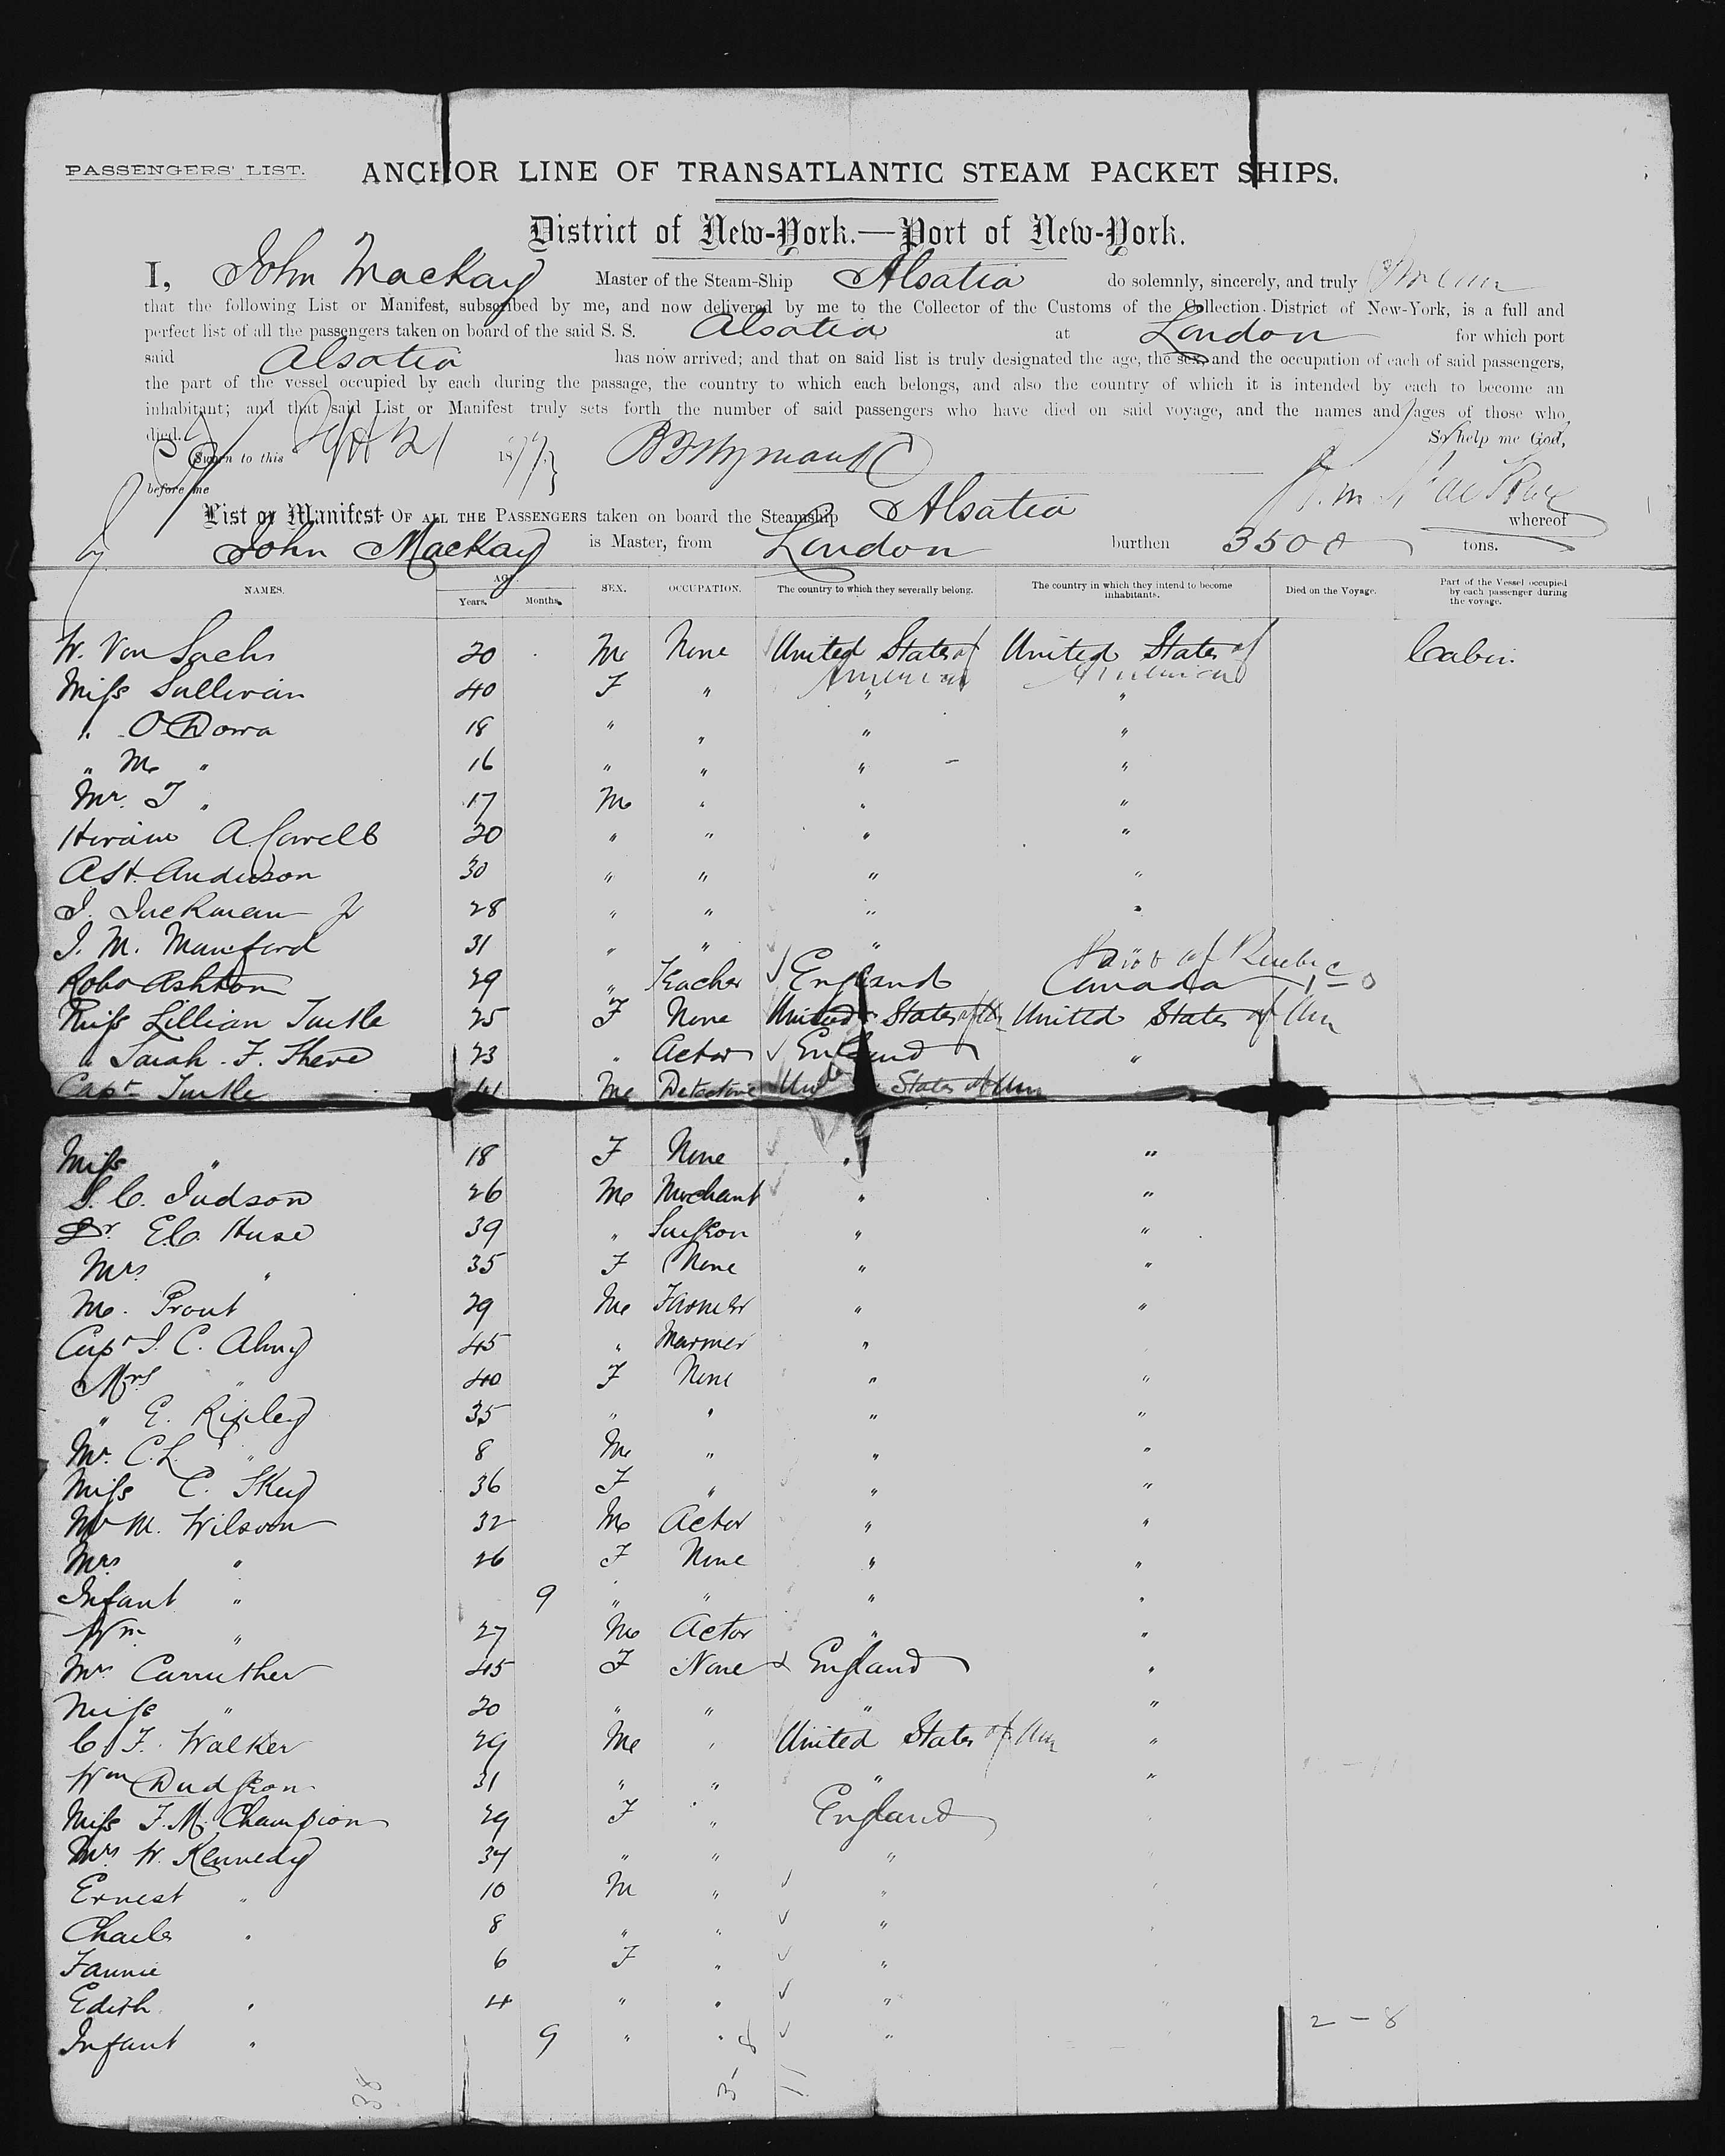 PASSENGERS' LIST.
ANCHOR LINE OF TRANSATLANTIC STEAM PACKET SHIPS.
District of New-York.—Port of New-York.
I, John Mackay Master of the Steam-Ship Alsatia do solemnly, sincerely, and truly
that the following List or Manifest, subscribed by me, and now delivered by me to the Collector of the Customs of the Collection District of New-York, is a full and
perfect list of all the passengers taken on board of the said S. S. Alsatia at London for which port
said Alsatia has now arrived; and that on said list is truly designated the age, the sex, and the occupation of each of said passengers,
the part of the vessel occupied by each during the passage, the country to which each belongs, and also the country of which it is intended by each to become an
inhabitant; and that said List or Manifest truly sets forth the number of said passengers who have died on said voyage, and the names and ages of those who
died. So help me God,
Sworn to this Sept 21 1877
before me
List or Manifest OF ALL THE PASSENGERS taken on board the Steamship Alsatia whereof
John Mackay is Master, from London burthen 3500 tons.
NAMES. AGE. Years. Months. SEX. OCCUPATION. The country to which they severally belong. The country in which they intend to become inhabitants. Died on the Voyage. Part of the Vessel occupied by each passenger during the voyage.
W. Von Sachs 20 M None United States of America United States of America Cabin
Miss Sullivan 40 F " " "
" O'Dowa 18 " " " "
" M " 16 " " " "
Mr. T " 17 M " " "
Hiram A. 20 " " " "
A St. Anderson 30 " " " "
J. Luckman Jr 28 " " " "
J. M. Mumford 31 " " "
Robt Ashton 29 " Teacher England Canada
Miss Lillian Turtle 25 F None United States of Am United States of Am
" Sarah F. 23 " Actor England "
Capt Turtle 41 M Detective United States of Am
Miss " 18 F None " "
S. C. Judson 26 M Merchant " "
Dr. E.C. Huse 39 " Surgeon " "
Mrs " 35 F None " "
M. Prout 29 M Farmer " "
Capt J. C. Almy 45 " Mariner "
Mrs " 40 F None " "
" E. Ripley 35 " " " "
Mr. C.L. " 8 M " " "
Miss C. Skey 36 F " " "
Mr M. Wilson 32 M Actor " "
Mrs " 26 F None " "
Infant " 9 " " " "
Wm " 27 M Actor " "
Mrs Carruther 45 F None England "
Miss " 20 " " " "
C. F. Walker 29 M " United States of Am "
Wm Dudgeon 31 " " " "
Miss F. M. Champion 29 F " England
Mrs W. Kennedy 34 " " "
Ernest " 10 M " "
Charles " 8 " " "
Fannie 6 F " "
Edith " 4 " " "
Infant " 9 " " "
2 - 8
38